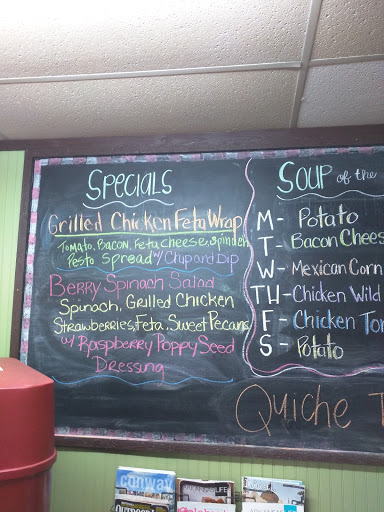 SPECIALS
Grilled Chicken Feta Wrap
Tomato, Bacon, Feta cheese, Spinach
Pesto Spread w/ Chip and Dip
Berry Spinach Salad
Spinach, Grilled Chicken
Strawberries, Feta, Sweet Pecans
w/ Raspberry Poppy Seed
Dressing
SOUP of the
M - Potato
T - Bacon Chees
W - Mexican Corn
TH - Chicken Wild
F - Chicken Tor
S - Potato
Quiche T
conway
OUTDOOR